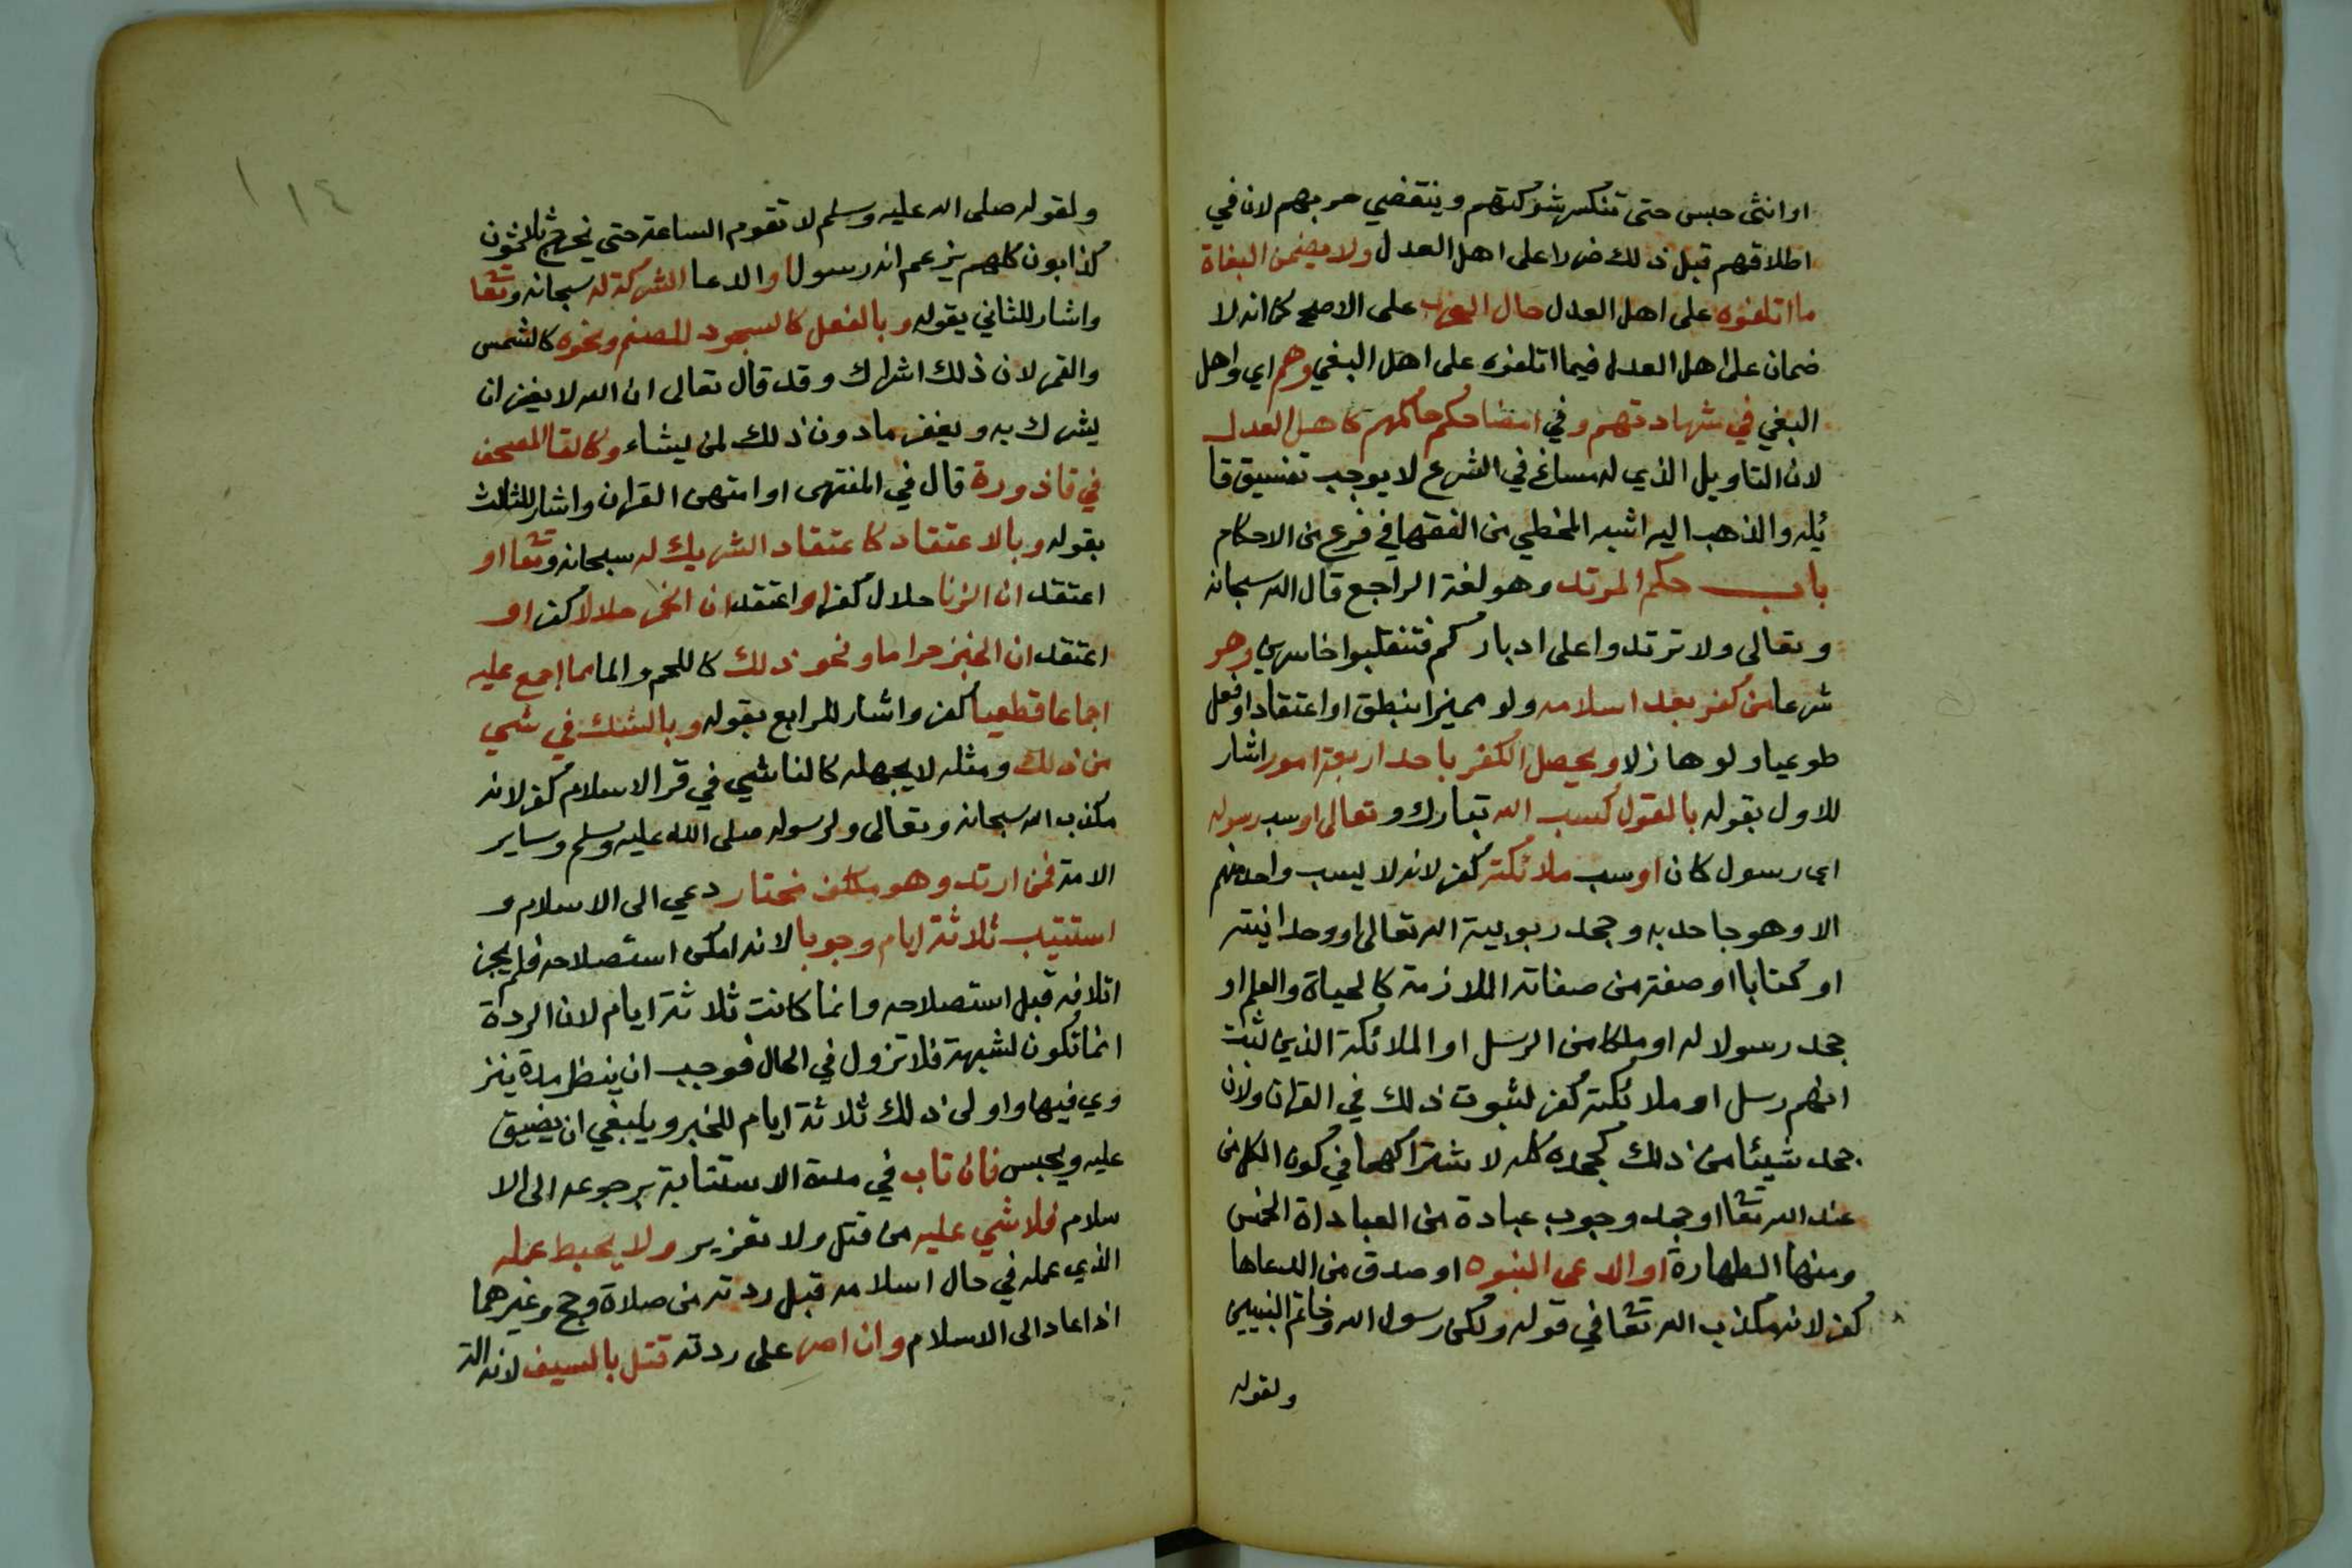 او انثى حبس حتى تنكسر شوكتهم وينقضي حربهم لان في
اطلاقهم قبل ذلك ضررا على اهل العدل ولا يضمن البغاة
ما اتلفوه على اهل العدل حال الحرب على الاصح كما انه لا
ضمان على اهل العدل فيما اتلفوه على اهل البغي وهم اي واهل
البغي في شهادتهم وفي امضا حكم حاكمهم كاهل العدل
لان التاويل الذي له مساغ في الشرع لا يوجب تفسيق قا
ئله والذهب اليه اشبه المخطي من الفقها في فرع من الاحكام
باب حكم المرتد وهو لغة الراجع قال الله سبحانه
وتعالى ولا ترتدوا على ادباركم فتنقلبوا خاسرين وهو
شرعا من كفر بعد اسلامه ولو مميزا بنطق او اعتقاد او فعل
طوعيا ولو هازلا ويحصل الكفر باحد اربعة امور اشار
للاول بقوله بالقول كسب الله تبارك وتعالى او سب رسوله
اي رسول كان او سب ملائكته كفر لانه لا يسب واحد منهم
الا وهو جاحد به وجحد ربوبية الله تعالى او وحدانيته
او كتابا او صفة من صفاته اللازمة كالحياة والعلم او
جحد رسولا له او ملكا من الرسل او الملائكة الذين ثبت
انهم رسل او ملائكته كفر لثبوت ذلك في القران ولان
جحد شيئا من ذلك كجحده كله لاشتراكهما في كون الكل من
عند الله تعا او جحد وجوب عبادة من العباداة الخمس
ومنها الطهارة او الدعى النبوه او صدق من الدعاها
كفر لانه مكذب الله تعا في قوله ولكن رسول الله وخاتم النبيين
ولقوله
١٤
ولقوله صلى الله عليه وسلم لا تقوم الساعة حتى يخرج ثلاثون
كذابون كلهم يزعم انه رسول او الدعا الشركة له سبحانه وتعا
واشار للثاني بقوله وبالفعل كالسجود للصنم ونحوه كالشمس
والقمر لان ذلك اشراك وقد قال تعالى ان الله لا يغفر ان
يشرك به ويغفر ما دون ذلك لمن يشاء وكالقا المصحف
في قاذورة قال في المنتهى او امتهى القران واشار للثالث
بقوله وبالاعتقاد كاعتقاد الشريك له سبحانه وتعا او
اعتقد ان الزنا حلال كفر او اعتقد ان الخمر حلالا كفر او
اعتقد ان الخبز حراما ونحو ذلك كاللحم والما مما اجمع عليه
اجماعا قطعيا كفر واشار للرابع بقوله وبالشك في شي
من ذلك ومثله لا يجهله كالناشي في قر الاسلام كفر لانه
مكذب الله سبحانه وتعالى ولرسوله صلى الله عليه وسلم وساير
الامة فمن ارتد وهو مكلف مختار دعي الى الاسلام و
استتيب ثلاثة ايام وجوبا لانه امكن استصلاحه فلم يجز
اتلافه قبل استصلاحه وانما كانت ثلاثة ايام لان الردة
انما تكون لشبهة فلا تزول في الحال فوجب ان ينظر مدة يتر
وي فيها واولى ذلك ثلاثة ايام للخبر ويلبغي ان يضيق
عليه ويحبس فان تاب في مدة الاستتابة برجوعه الى الا
سلام فلا شي عليه من قتل ولا تعزير ولا يحبط عمله
الذي عمله في حال اسلامه قبل ردته من صلاة وحج وغيرهما
اذا عاد الى الاسلام وان اصر على ردته قتل بالسيف لانه